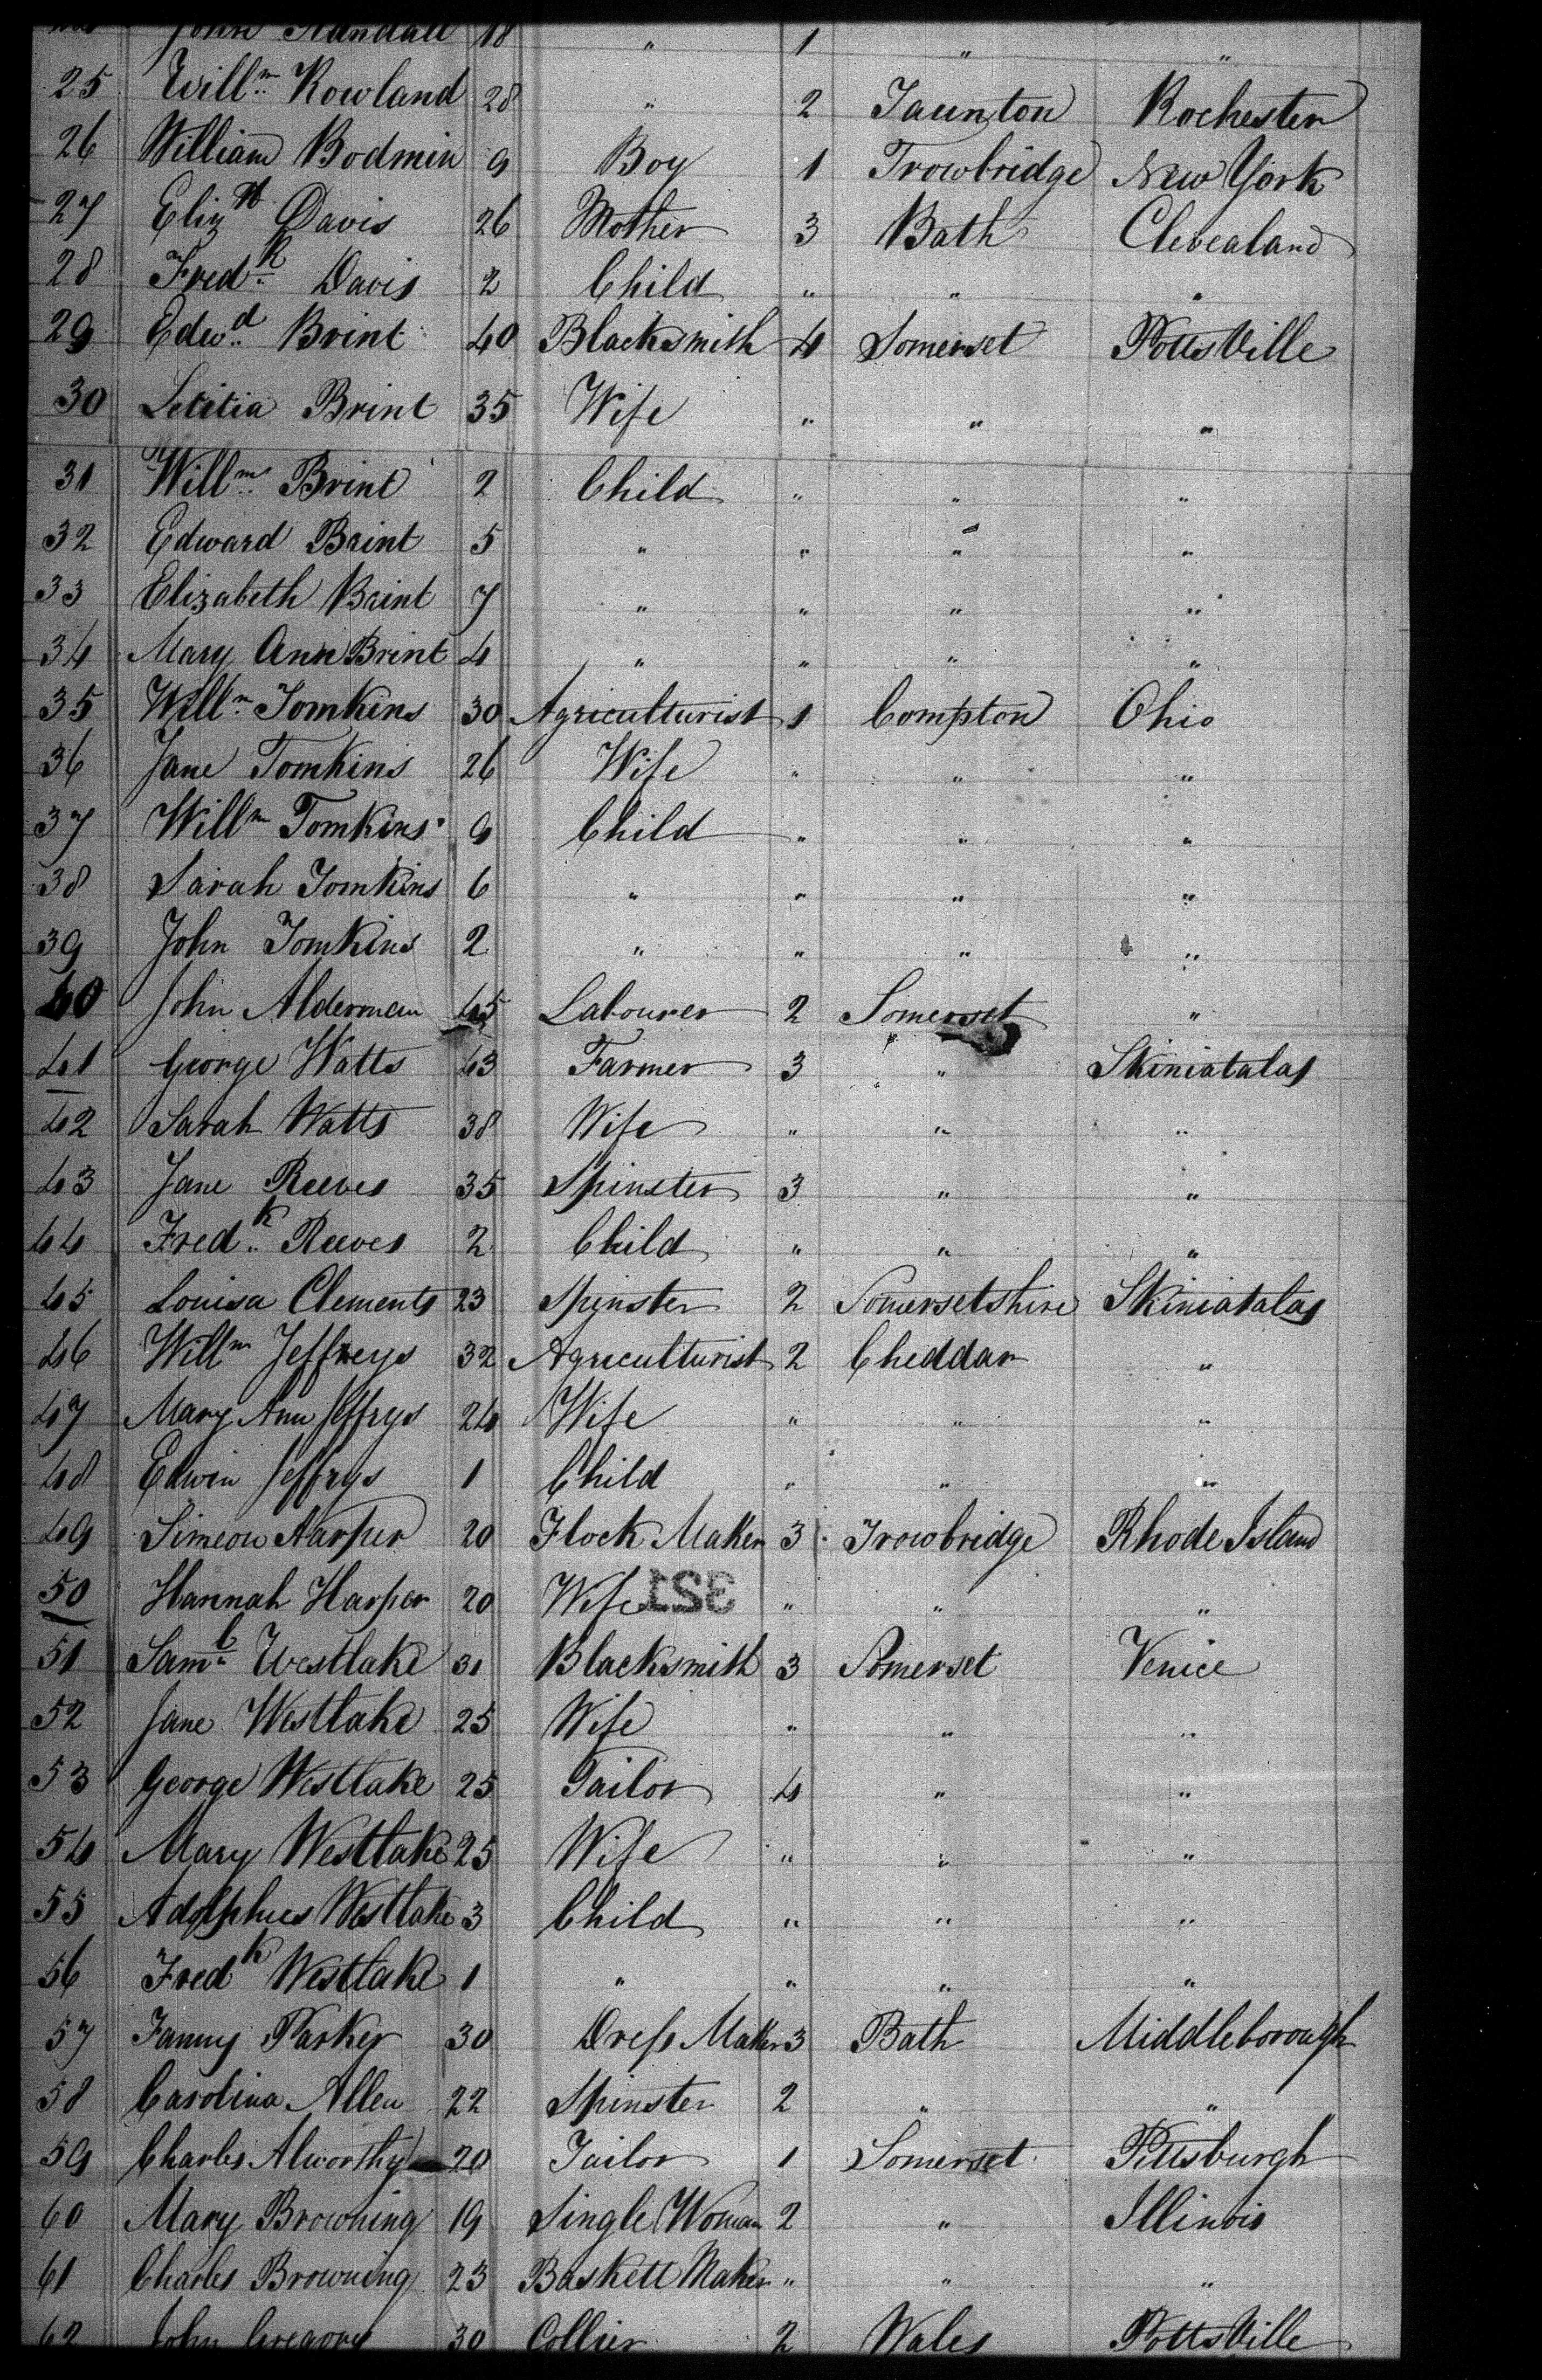 John Randall 18 " 1 " "
25 Willm Rowland 28 " 2 Taunton Rochester
26 William Bodmin 9 Boy 1 Trowbridge New York
27 Elizth Davis 26 Mother 3 Bath Clevealand
28 Fredk Davis 2 Child " " "
29 Edwd Brint 40 Blacksmith 4 Somerset PottsVille
30 Letitia Brint 35 Wife " " "
31 Willm Brint 2 Child " " "
32 Edward Brint 5 " " " "
33 Elizabeth Brint 7 " " " "
34 Mary Ann Brint 4 " " " "
35 Willm Tomkins 30 Agriculturist 1 Compton Ohio
36 Jane Tomkins 26 Wife " " "
37 Willm Tomkins 9 Child " " "
38 Sarah Tomkins 6 " " " "
39 John Tomkins 2 " " " "
40 John Alderman 45 Labourer 2 Somerset "
41 George Watts 43 Farmer 3 " Skiniatalas
42 Sarah Watts 38 Wife " " "
43 Jane Reeves 35 Spinster 3 " "
44 Fredk Reeves 2 Child " " "
45 Louisa Clements 23 Spinster 2 Somersetshire Skiniatalas
46 Willm Jeffreys 32 Agriculturist 2 Cheddar "
47 Mary Ann Jeffrys 24 Wife " " "
48 Edwin Jeffrys 1 Child " " "
49 Simeon Harper 20 Flock Maker 3 Trowbridge Rhode Island
50 Hannah Harper 20 Wife 321 " " "
51 Saml Westlake 31 Blacksmith 3 Somerset Venice
52 Jane Westlake 25 Wife " " "
53 George Westlake 25 Tailor 4 " "
54 Mary Westlake 25 Wife " " "
55 Adolphues Westlake 3 Child " " "
56 Fredk Westlake 1 " " " "
57 Fanny Parker 30 Dress Maker 3 Bath Middleborough
58 Carolina Allen 22 Spinster 2 " "
59 Charles Alworthy 20 Tailor 1 Somerset Pittsburgh
60 Mary Browning 19 Single Woman 2 " Illinois
61 Charles Browning 23 Baskett Maker " " "
62 John Gregory 30 Collier 2 Wales PottsVille